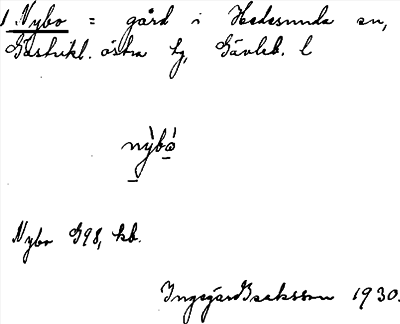 1 Nybo = gård i Hedesunda sn,
Gästrikl. östra tg, Gävleb. l
nỳbó
Nybo G98, kb.
Ingegärd Isaksson 1930.